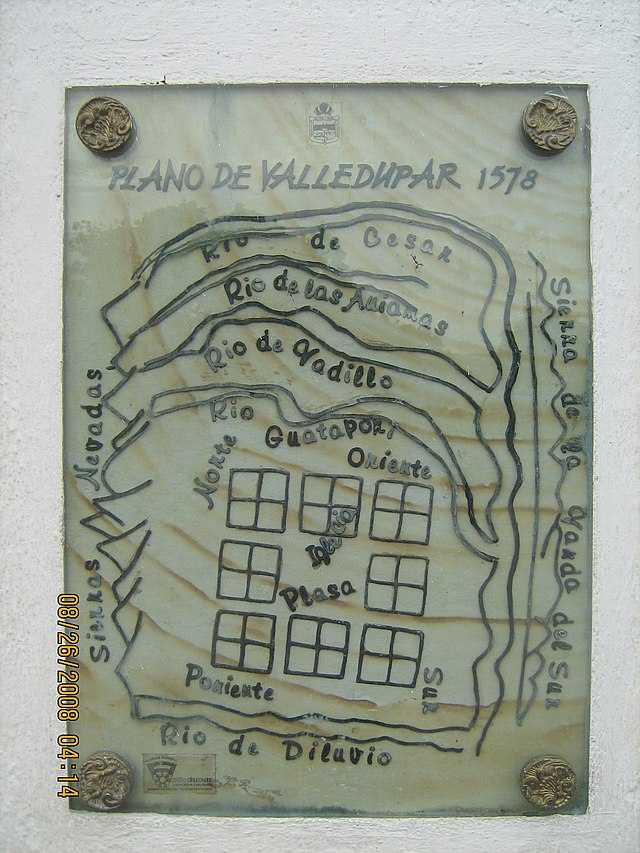 PLANO DE VALLEDUPAR 1578
Rio de Cesar
Rio de las Auiamas
Rio de Vadillo
Rio Guatapori
Norte
Oriente
Iglecia
Plasa
Poniente
Sur
Rio de Diluvio
Sierras Nevadas
Sierra de la Vanda del Sur
08/26/2008 04:14